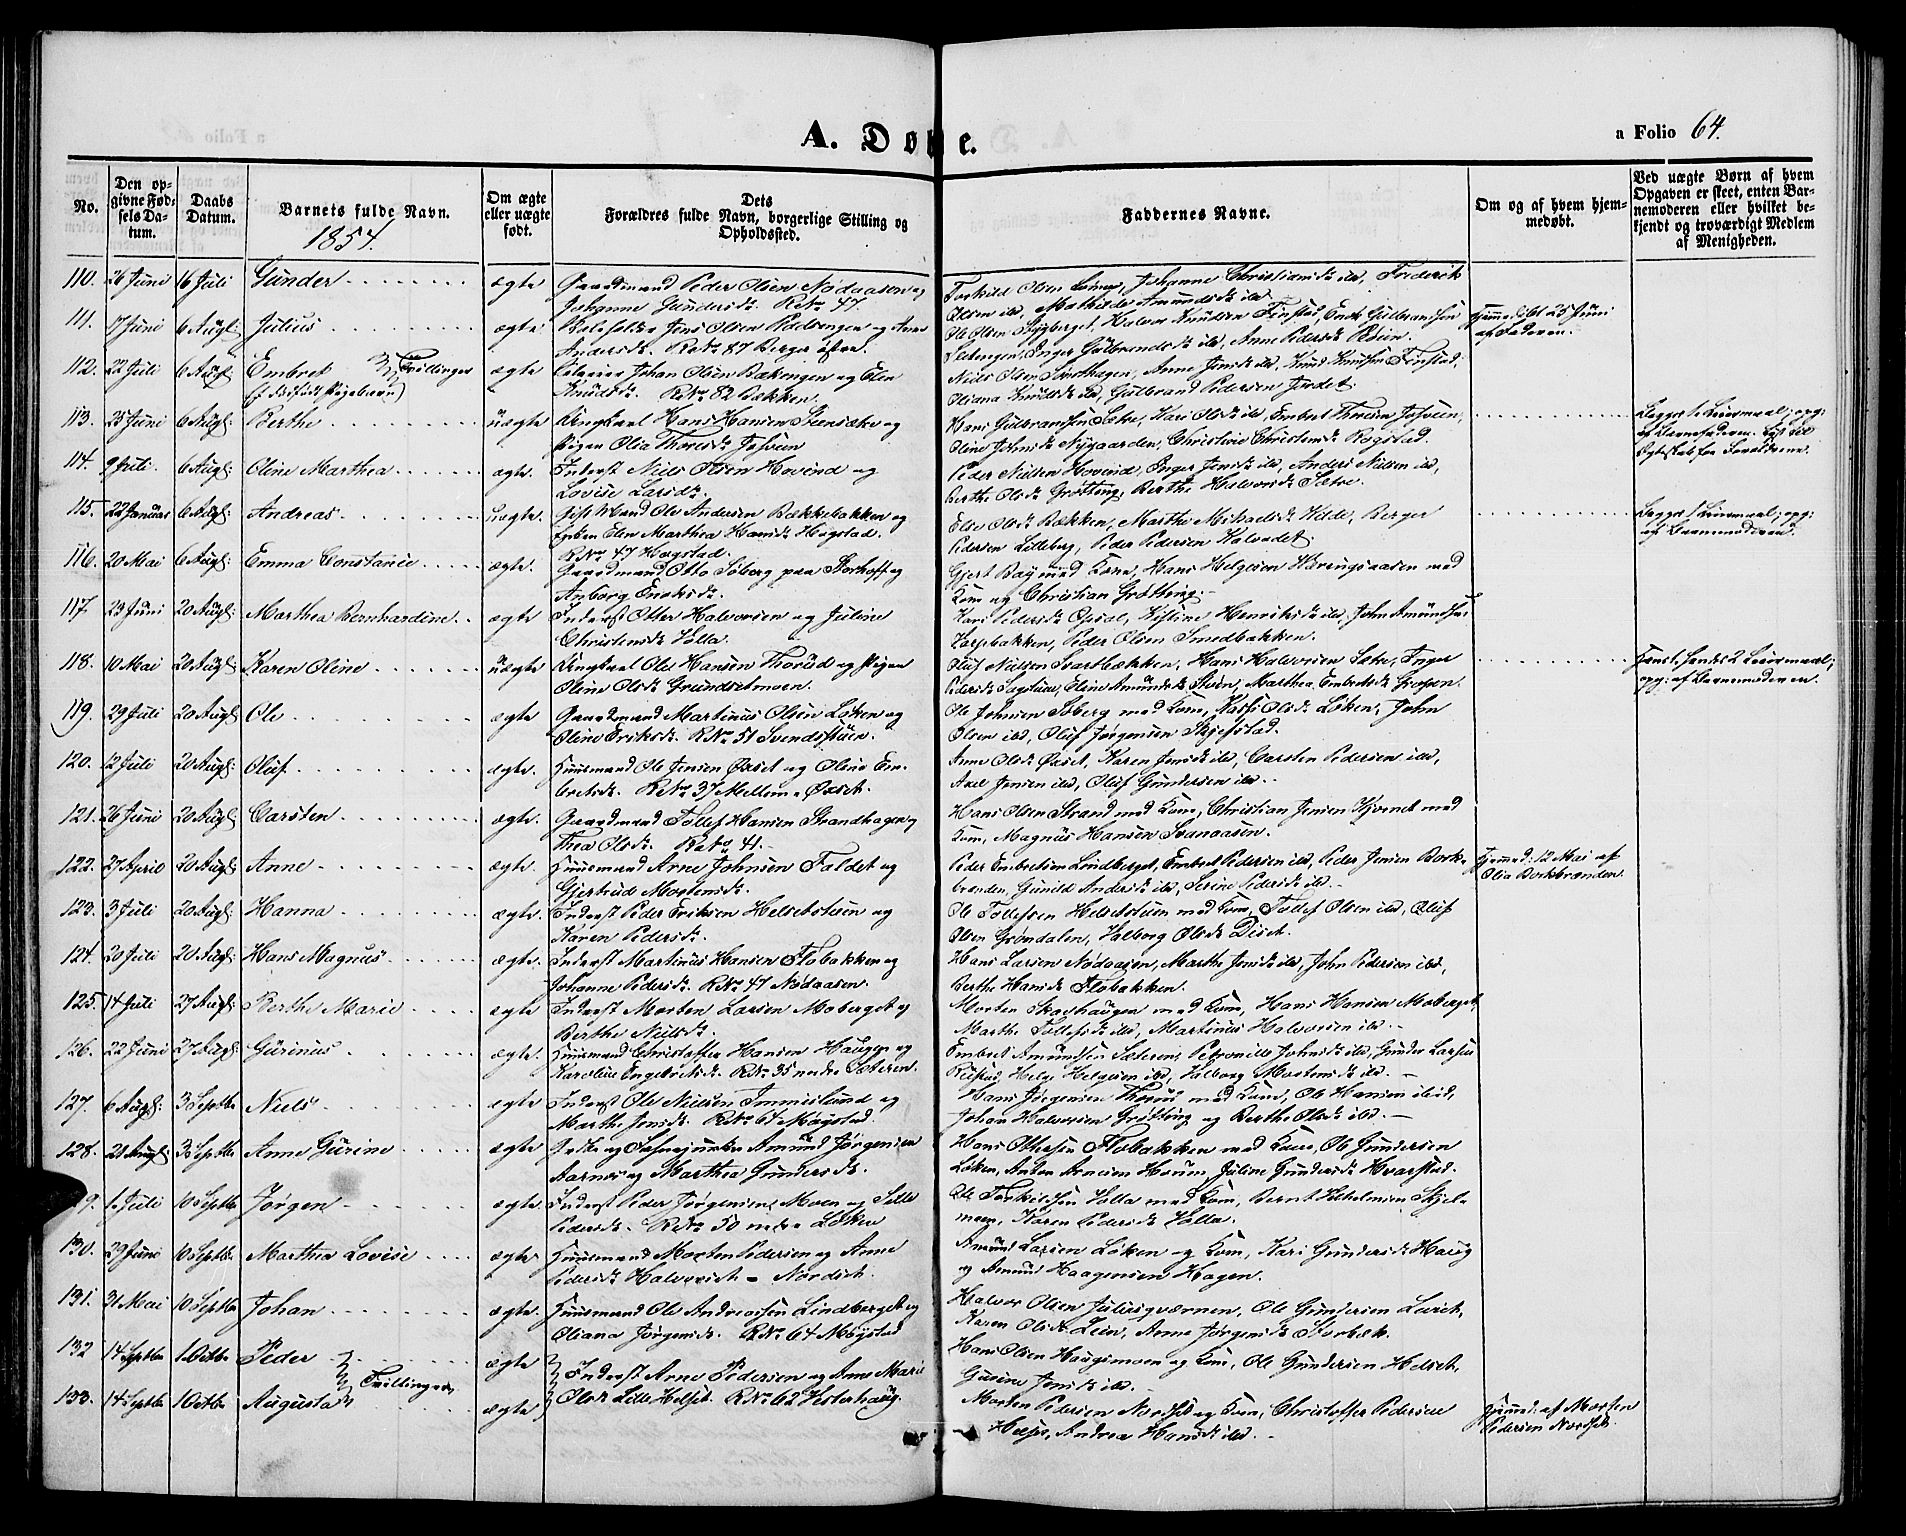 A. Døbte.
a Folio 64.
No.
Den opgivne Fødsels Datum.
Daabs Datum.
Barnets fulde Navn.
1854.
Om ægte eller uægte født.
Dets Forældres fulde Navn, borgerlige Stilling og Opholdssted.
Faddernes Navne.
Om og af hvem hjemmedøbt.
Ved uægte Børn af hvem Opgaven er skeet, enten Barnemoderen eller hvilket bekjendt og troværdigt Medlem af Menigheden.
110. 26 Juni 16 Juli Gunder ægte Gaardmand Peder Olsen Nodaasen og
Johanne Gundersd. RNo 47.
Torkild Olsen, Johanne Christiansd. ibd, Frederik
Olsen ibd, Mathilde Amundsd. ibd
111. 17 Juni 6 Augt Julius ægte Jens Olsen og Anne
Andersd. RNo 87 Berger østre.
Ole Olsen Sygberget, Halvor Knudsen Finstad, Embr. Gulbrandsen
Inger Gulbrandsd. ibd, Anne Pedersd.
Hjemmedøbt 25 Juni
af Faderen.
112. 22 Juli 6 Augt Embret Tvillinger ægte Johan Olsen og Eli
Knudsd. RNo 82 Bækken.
Niels Olsen, Anne Jensd. ibd, Knud Knudsen Finstad,
Oliana Knudsd. ibd, Gulbrand Pedersen Jordet.
113. 25 Juni 6 Augt: Berthe uægte Ungkarl Hans Hansen og
Pigen Olia Thoresd.
Hans Gulbrandsen Sætre, Kari Olsd. ibd, Embret Thoresen
Oline Johnsd. Nygaarden, Christine Christensd. Rogstad.
Begges 1 Leiermaal; opg:
af Barnefaderen.
114. 9 Juli. 6 Augt: Oline Marthea ægte. Inderst Niels Olsen Hovind og
Lovise Larsd.
Peder Nielsen Hovind, Inger Jensd. ibd, Anders Nielsen ibd,
Berthe Olsd. Grøtting, Berthe Halvorsd. Sætre.
115. 22 Januar 6 Augt. Andreas uægte. Gift Mand Ole Andersen Bækkebakken og
Enken Elen Marthea Hansd. Hogstad.
RNo 47 Hogstad.
Else Olsd. Bækken, Marthe Mikaelsd. Berger
Pedersen Lilleberg, Peder Pedersen
Begges 1 Leiermaal; opg:
af Barnemoderen.
116. 20 Mai 6 Augt: Emma Constance ægte. Gaardmand Otto Søberg paa Storhoff og
Anborg
Gjert Bay med Kone, Hans Helgesen med
Kone og Christian Grøtting.
117. 23 Juni 20 Augt: Marthea Bernhardine ægte Inderst Otter Halvorsen og Juline
Christensd. Holla.
Kari Pedersd. Opsal, Kistine Henriksd. ibd, John Amundsen
Peder Olsen Smedbakken.
118. 10 Mai 20 Augt: Karen Oline uægte Ungkarl Ole Hansen Thorud og Pigen
Oline Olsd. Grundsetmoen.
Oluf Nielsen Svartbækken, Hans Halvorsen Sætre, Inger
Pedersd. Sagstuen, Eline Amundsd. Stien, Marthea Embretsd. Grosen.
Hans 1. hendes 2 Leiermaal;
opg: af Barnemoderen.
119. 29 Juli 20 Augt: Ole ægte Gaardmand Martinus Olsen Løken og
Oline Eriksd. RNo 51 Svendstuen.
Ole Johnsen Søberg med Kone, Kari Olsd. Løken, John
Olsen ibd, Oluf Jørgensen Skjefstad.
120. 2 Juli 20 Augt: Oluf ægte. Huusmand Ole Jensen Øxset og Oline Em-
bretsd. RNo 37 Mellem-Øxset.
Anne Olsd. Øxset, Karen Jensd. ibd, Carsten Pedersen ibd,
Axel Jensen ibd, Oluf Gundersen ibd.
121. 26 Juni 20 Augt: Carsten ægte. Gaardmand Tollef Hansen Strandhagen og
Thea Olsd. RNo 41.
Hans Olsen Strand med Kone, Christian Jensen Kværnet med
Kone, Magnus Hansen Svenaasen.
122. 27 April 20 Augt: Anne ægte. Huusmand Arne Johnsen Faldet og
Gjertrud Mortensd.
Peder Embretsen Lindberget, Embret Pedersen ibd, Peder Jensen Bork-
brænden, Gunild Andersd. ibd, Serine Pedersd. ibd.
Hjemmed: 12 Mai af
Olia Borkbrænden
123. 3 Juli 20 Augt: Hanna ægte. Inderst Peder Eriksen Helsetstuen og
Karen Pedersd.
Ole Tollefsen Helsetstuen med Kone, Tollef Olsen ibd, Oluf
Olsen Grøndalen, Valborg Olsd. Diset.
124. 20 Juli 20 Augt: Hans Magnus ægte. Inderst Martinus Hansen Flobakken og
Johanne Pedersd. RNo 47 Nodaasen.
Hans Larsen Nodaasen, Marthe Jensd. ibd, John Pedersen ibd,
Berthe Hansd. Flobakken.
125. 14 Juli 27 Augt: Berthe Marie ægte Inderst Morten Larsen Moberget og
Berthe Nielsd.
Morten Skaehaugen med Kone, Hans Hansen Moberget,
Marthe Tollefsd. ibd, Martinus Halvorsen ibd.
126. 22 Juni 27 Augt: Gurinus ægte. Huusmand Christoffer Hansen Haugen og
Karoline Engebretsd. RNo 35 nedre Sæteren.
Embret Amundsen Sæteren, Petronille Johnsd. ibd, Gunder Larsen
Helge Helgesen ibd, Valborg Mortensd. ibd.
127. 6 Augt: 3 Septbr Niels ægte Inderst Ole Nielsen Immeslund og
Marthe Jensd. RNo 64 Møystad.
Hans Jørgensen Thorud med Kone, Ole Hansen ibid,
Johan Halvorsen Grøtting og Berthe Olsd. ibd.
128. 21 Augt: 3 Septbr Anne Gurine ægte Amund Jørgensen
Aarnes og Marthea Gundersd.
Hans Ottersen Flobakken med Kone, Ole Gundersen
Løken, Anton Arnesen Horum, Juline Gundersd. Hvarstad.
9. 1 Juli 10 Septbr Jørgen ægte Inderst Peder Jørgensen Moen og Sille
Pedersd. RNo 50 nedre Løken
Ole Torkildsen Holla med Kone, Bernt Skjel-
moen, Karen Pedersd. Holla.
130. 29 Juni 10 Septbr Marthea Lovise ægte Huusmand Morten Pedersen og Anne
Pedersd. Halvorset - Nordset.
Amund Larsen Løken og Kone, Kari Gundersd. Haug
og Amund Haagensen Hagen.
131. 31 Mai 10 Septbr Johan ægte. Huusmand Ole Andreassen Lindberget og
Oliana Jørgensd. RNo 64 Møystad
Halvor Olsen Juliusqværnen, Ole Gundersen
Karen Olsd. Anne Jørgensd. Storbæk.
132 14 Septbr 1 Octbr Peder ægte Inderst Arne Pedersen og Anne Marie
Tvillinger
Hans Olsen Haugsmoen og Kone, Ole Gundersen Helset,
Gurine Jensd. ibd.
133. 14 Septbr 1 Octbr Augusta ægte Olsd. Lille Helset. RNo 62 Vesterhaug.
Morten Pedersen Nordset og Kone, Christoffer Pedersen
Andrea Hansd. ibd.
Hjemmed: af Morten
Pedersen Nordset.